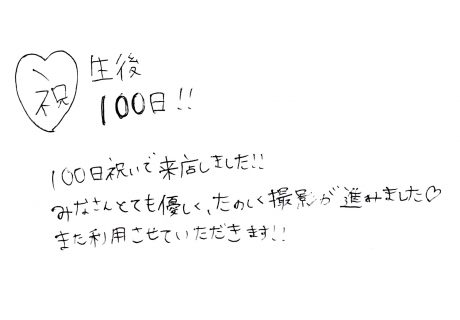 祝
生後
100日!!
100日祝いで来店しました!!
みなさんとても優しく、たのしく撮影が進みました♡
また利用させていただきます!!